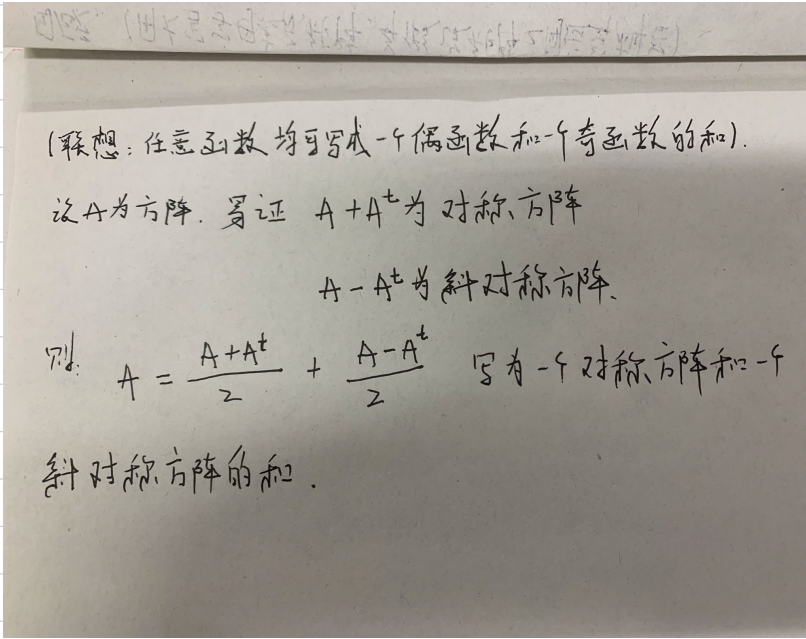 (联想：任意函数均可写成一个偶函数和一个奇函数的和).
设A为方阵. 易证 A+Aᵗ为对称方阵
A-Aᵗ为斜对称方阵.
则: A = (A+Aᵗ)/2 + (A-Aᵗ)/2 写为一个对称方阵和一个
斜对称方阵的和.